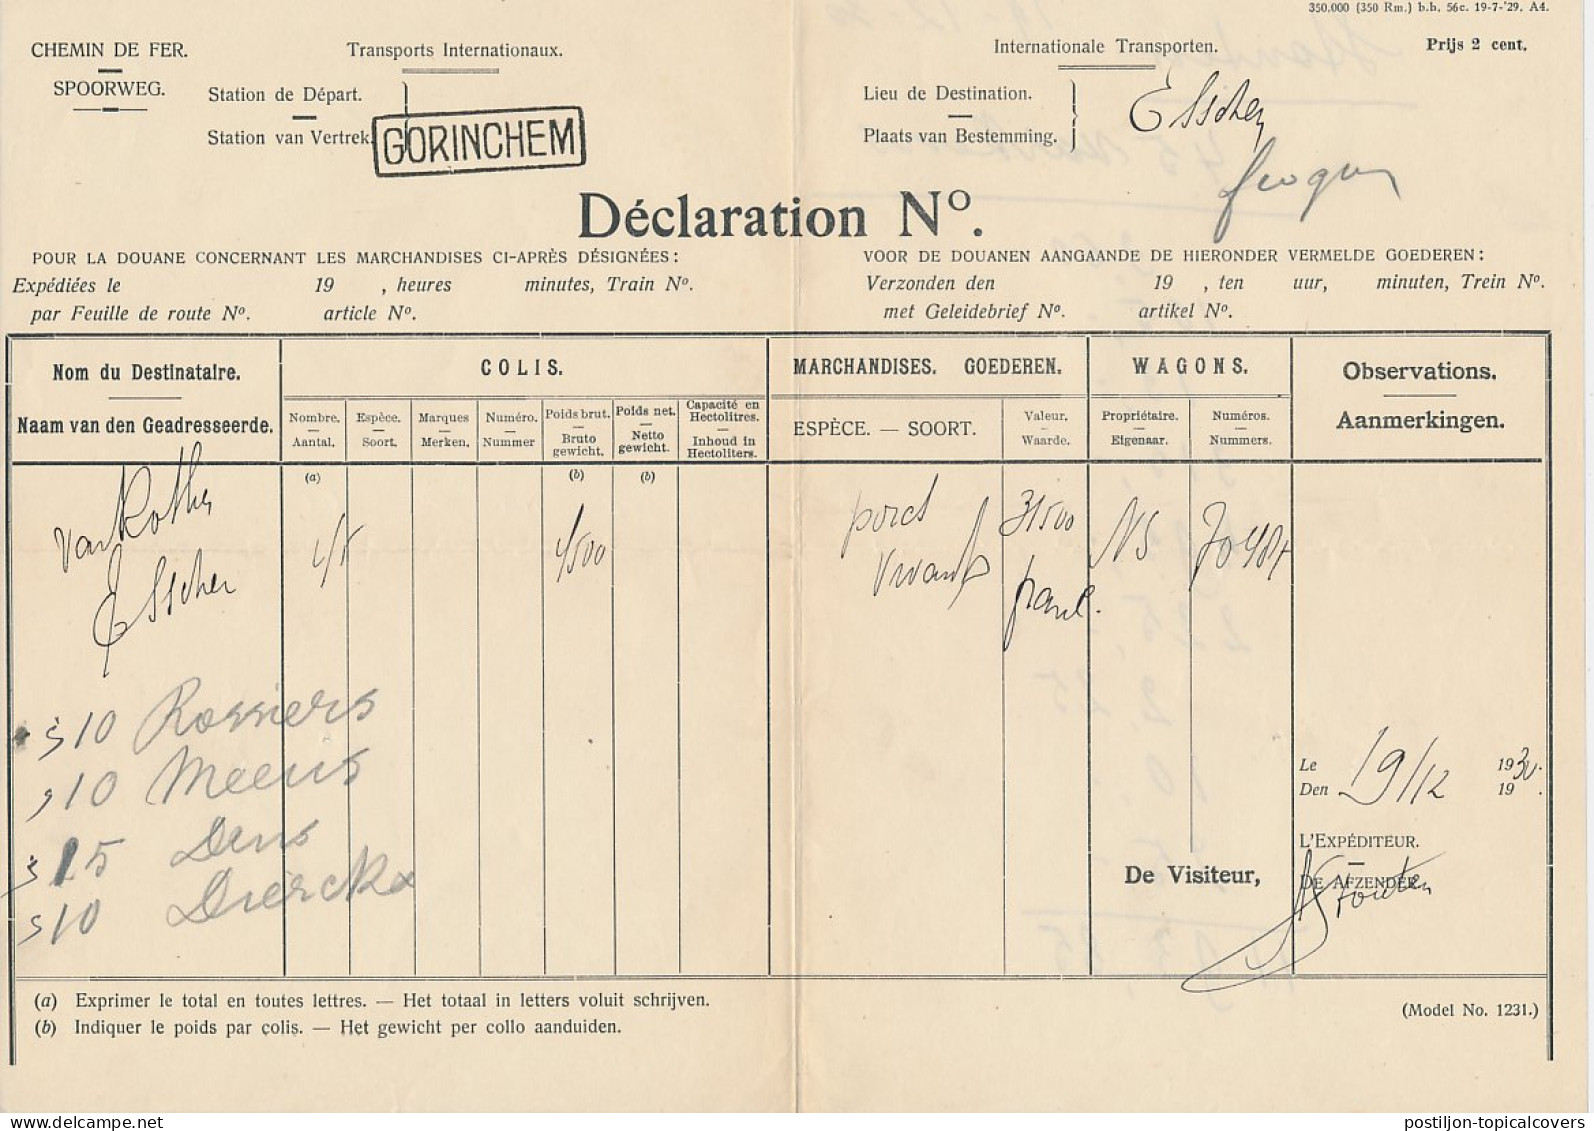 350.000 (350 Rm.) b.b. 56c. 19-7-'29. A4.
CHEMIN DE FER.
SPOORWEG.
Transports Internationaux.
Station de Départ.
Station van Vertrek.
GORINCHEM
Internationale Transporten.
Prijs 2 cent.
Lieu de Destination.
Plaats van Bestemming.
Esschen
Déclaration No.
POUR LA DOUANE CONCERNANT LES MARCHANDISES CI-APRÈS DÉSIGNÉES :
Expédiées le 19 , heures minutes, Train No.
par Feuille de route No. article No.
VOOR DE DOUANEN AANGAANDE DE HIERONDER VERMELDE GOEDEREN :
Verzonden den 19 , ten uur, minuten, Trein No.
met Geleidebrief No. artikel No.
Nom du Destinataire.
Naam van den Geadresseerde.
COLIS.
Nombre.
Aantal.
Espèce.
Soort.
Marques
Merken.
Numéro.
Nummer
Poids brut.
Bruto
gewicht.
Poids net.
Netto
gewicht.
Capacité en
Hectolitres.
Inhoud in
Hectoliters.
MARCHANDISES. GOEDEREN.
ESPÈCE. — SOORT.
Valeur.
Waarde.
WAGONS.
Propriétaire.
Eigenaar.
Numéros.
Nummers.
Observations.
Aanmerkingen.
(a) (b) (b)
Esschen
4500
31500
NS
10 Rossiers
10 Meeus
15 Dens
10 Dierckx
Le 19/12 1930.
Den 19 .
L'EXPÉDITEUR.
DE AFZENDER.
De Visiteur,
(a) Exprimer le total en toutes lettres. — Het totaal in letters voluit schrijven.
(b) Indiquer le poids par colis. — Het gewicht per collo aanduiden.
(Model No. 1231.)
postiljon-topicalcovers